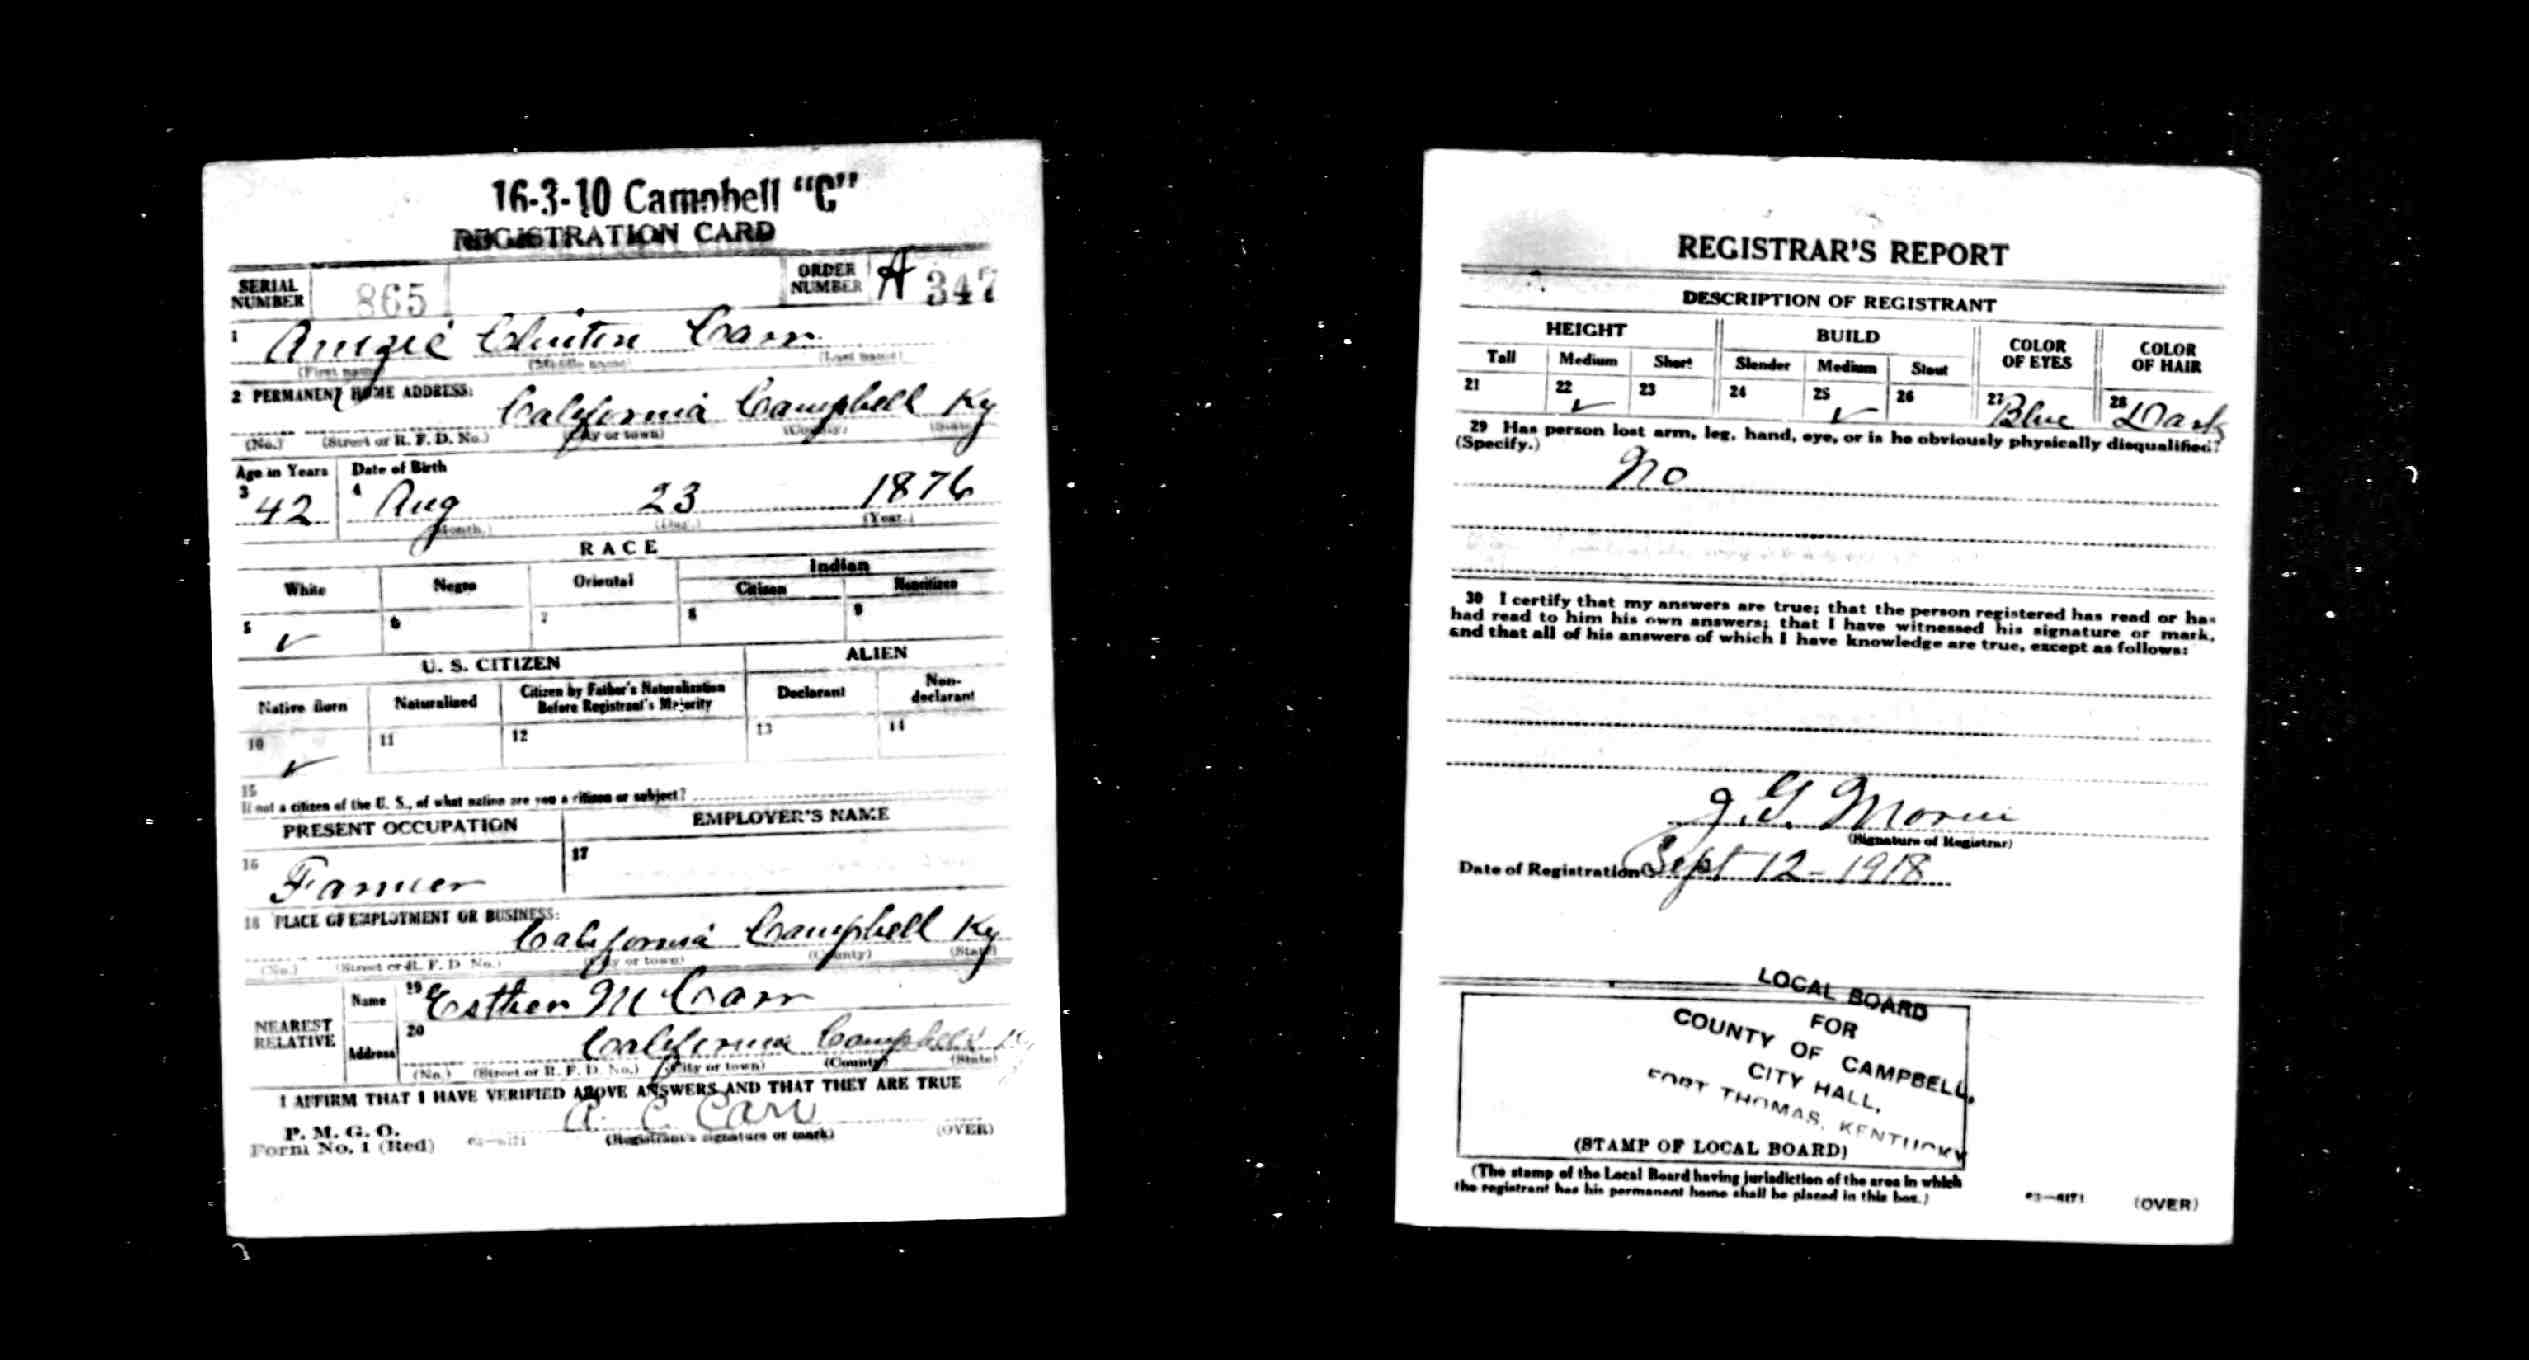 16-3-10 Campbell "C"
REGISTRATION CARD
SERIAL NUMBER 865 ORDER NUMBER A 347
1 Clinton Carr
(First name) (Middle name) (Last name)
2 PERMANENT HOME ADDRESS:
California Campbell Ky
(No.) (Street or R. F. D. No.) (City or town) (County) (State)
Age in Years Date of Birth
3 42 4 Aug 23 1876
(Month.) (Day.) (Year.)
RACE
White Negro Oriental Indian
Citizen Noncitizen
5 ✓ 6 7 8 9
U. S. CITIZEN ALIEN
Native Born Naturalized Citizen by Father's Naturalization Before Registrant's Majority Declarant Non-declarant
10 ✓ 11 12 13 14
15
If not a citizen of the U. S., of what nation are you a citizen or subject?
PRESENT OCCUPATION EMPLOYER'S NAME
16 Farmer 17
18 PLACE OF EMPLOYMENT OR BUSINESS:
California Campbell Ky
(No.) (Street or R. F. D. No.) (City or town) (County) (State)
NEAREST RELATIVE Name 19 Esther M Carr
Address 20 California Campbell Ky
(No.) (Street or R. F. D. No.) (City or town) (County) (State)
I AFFIRM THAT I HAVE VERIFIED ABOVE ANSWERS AND THAT THEY ARE TRUE
A. C. Carr
P. M. G. O.
Form No. 1 (Red) 03—6171 (Registrant's signature or mark) (OVER)
REGISTRAR'S REPORT
DESCRIPTION OF REGISTRANT
HEIGHT BUILD COLOR OF EYES COLOR OF HAIR
Tall Medium Short Slender Medium Stout
21 22 ✓ 23 24 25 ✓ 26 27 Blue 28 Dark
29 Has person lost arm, leg, hand, eye, or is he obviously physically disqualified?
(Specify.)
No
30 I certify that my answers are true; that the person registered has read or has
had read to him his own answers; that I have witnessed his signature or mark,
and that all of his answers of which I have knowledge are true, except as follows:
J. G.
(Signature of Registrar)
Date of Registration Sept 12-1918
LOCAL BOARD
FOR
COUNTY OF CAMPBELL,
CITY HALL,
FORT THOMAS, KENTUCKY
(STAMP OF LOCAL BOARD)
(The stamp of the Local Board having jurisdiction of the area in which
the registrant has his permanent home shall be placed in this box.)
03—6171 (OVER)